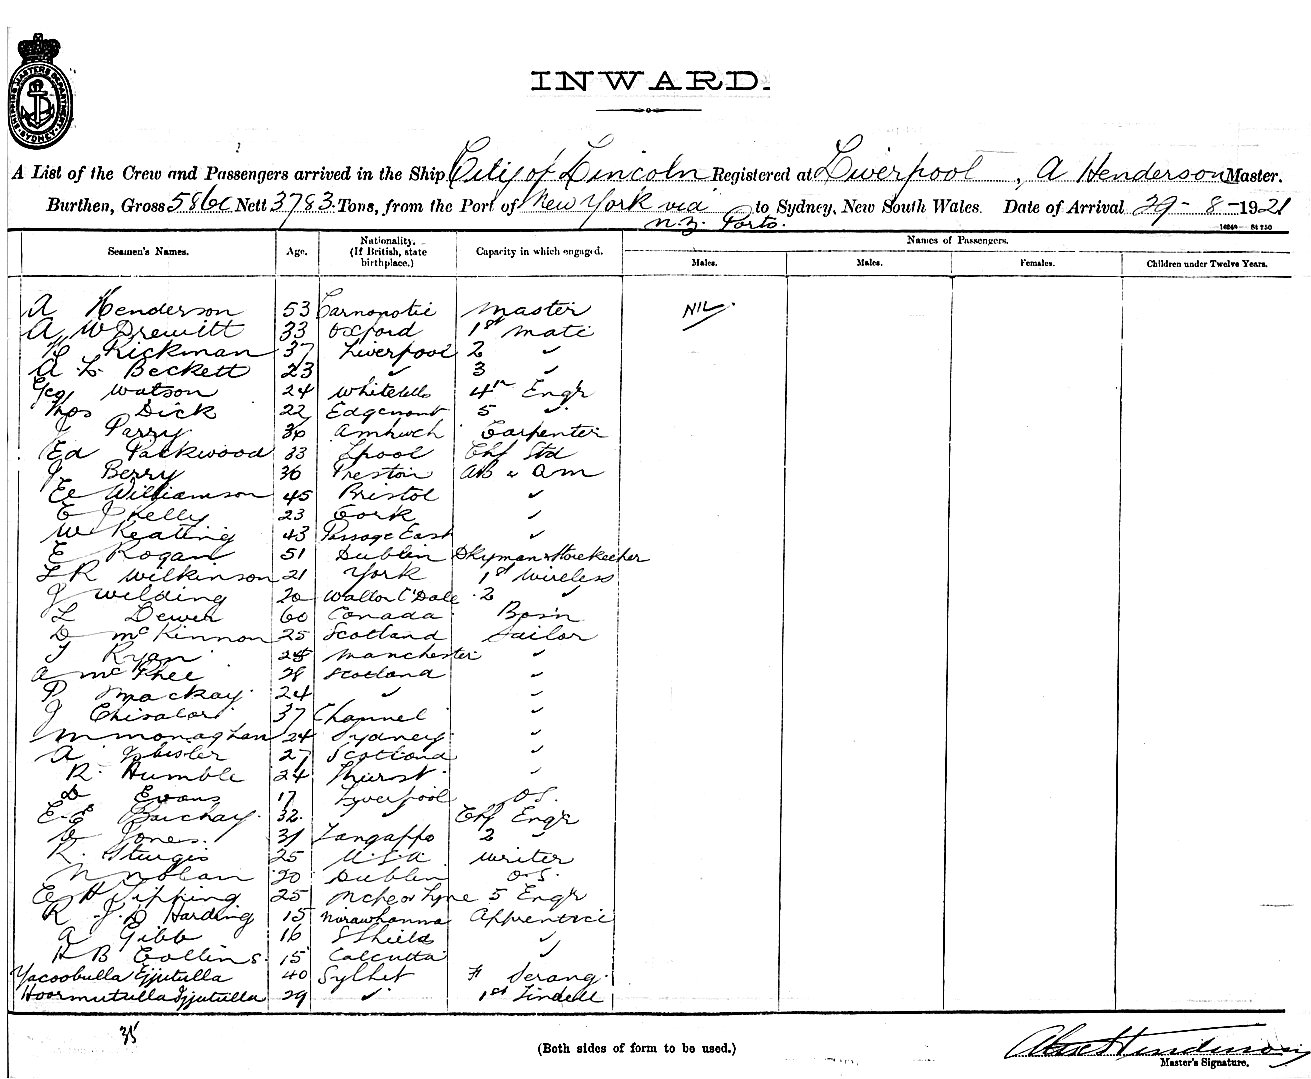 SHIPPING MASTERS DEPARTMENT SYDNEY
INWARD.
A List of the Crew and Passengers arrived in the Ship City of Lincoln Registered at Liverpool, A Henderson Master.
Burthen, Gross 5860 Nett 3783 Tons, from the Port of New York via to Sydney, New South Wales. Date of Arrival 29-8-1921
N.Z. Ports.
Seamen's Names. Age. Nationality. (If British, state birthplace.) Capacity in which engaged. Names of Passengers.
Males. Males. Females. Children under Twelve Years.
A Henderson 53 Carnoustie Master NIL
A W Drewitt 33 Oxford 1st Mate
H Rickman 37 Liverpool 2 "
A L Beckett 23 " 3 "
Geo Watson 24 4th Engr
Thos Dick 22 Edgemont 5 "
J Parry 36 Amlwch Carpenter
Ed Packwood 33 Lpool Chf Std
J Berry 36 Preston AB & QM
Williamson 45 Bristol "
E J Kelly 23 Cork "
W Keating 43 Passage East "
E Rogan 51 Dublin & Storekeeper
L R Wilkinson 21 York 1st Wireless
J Wilding 20 2 "
L 60 Canada Bosn
D McKinnon 25 Scotland Sailor
J Ryan Manchester "
A McPhee 28 Scotland "
P Mackay 24 " "
J 37 Channel "
M Monaghan 24 Sydney "
A 27 Scotland "
R Humble 24 "
D Evans 17 Liverpool O.S.
E. E 32. " Chf Engr
D Jones. 31 2 "
R. Sturgis 25 U.S.A Writer
N Nolan 20 Dublin O.S.
E H Tipping 25 5 Engr
R. J. D Harding 15 Apprentice
A Gibb 16 S Shields "
H B Collins. 15 Calcutta "
Yacoobulla Ejjutulla 40 Sylhet Serang.
Hoormutulla Ijjutulla 29 " 1st Tindell
35
(Both sides of form to be used.)
Alex Henderson
Master's Signature.